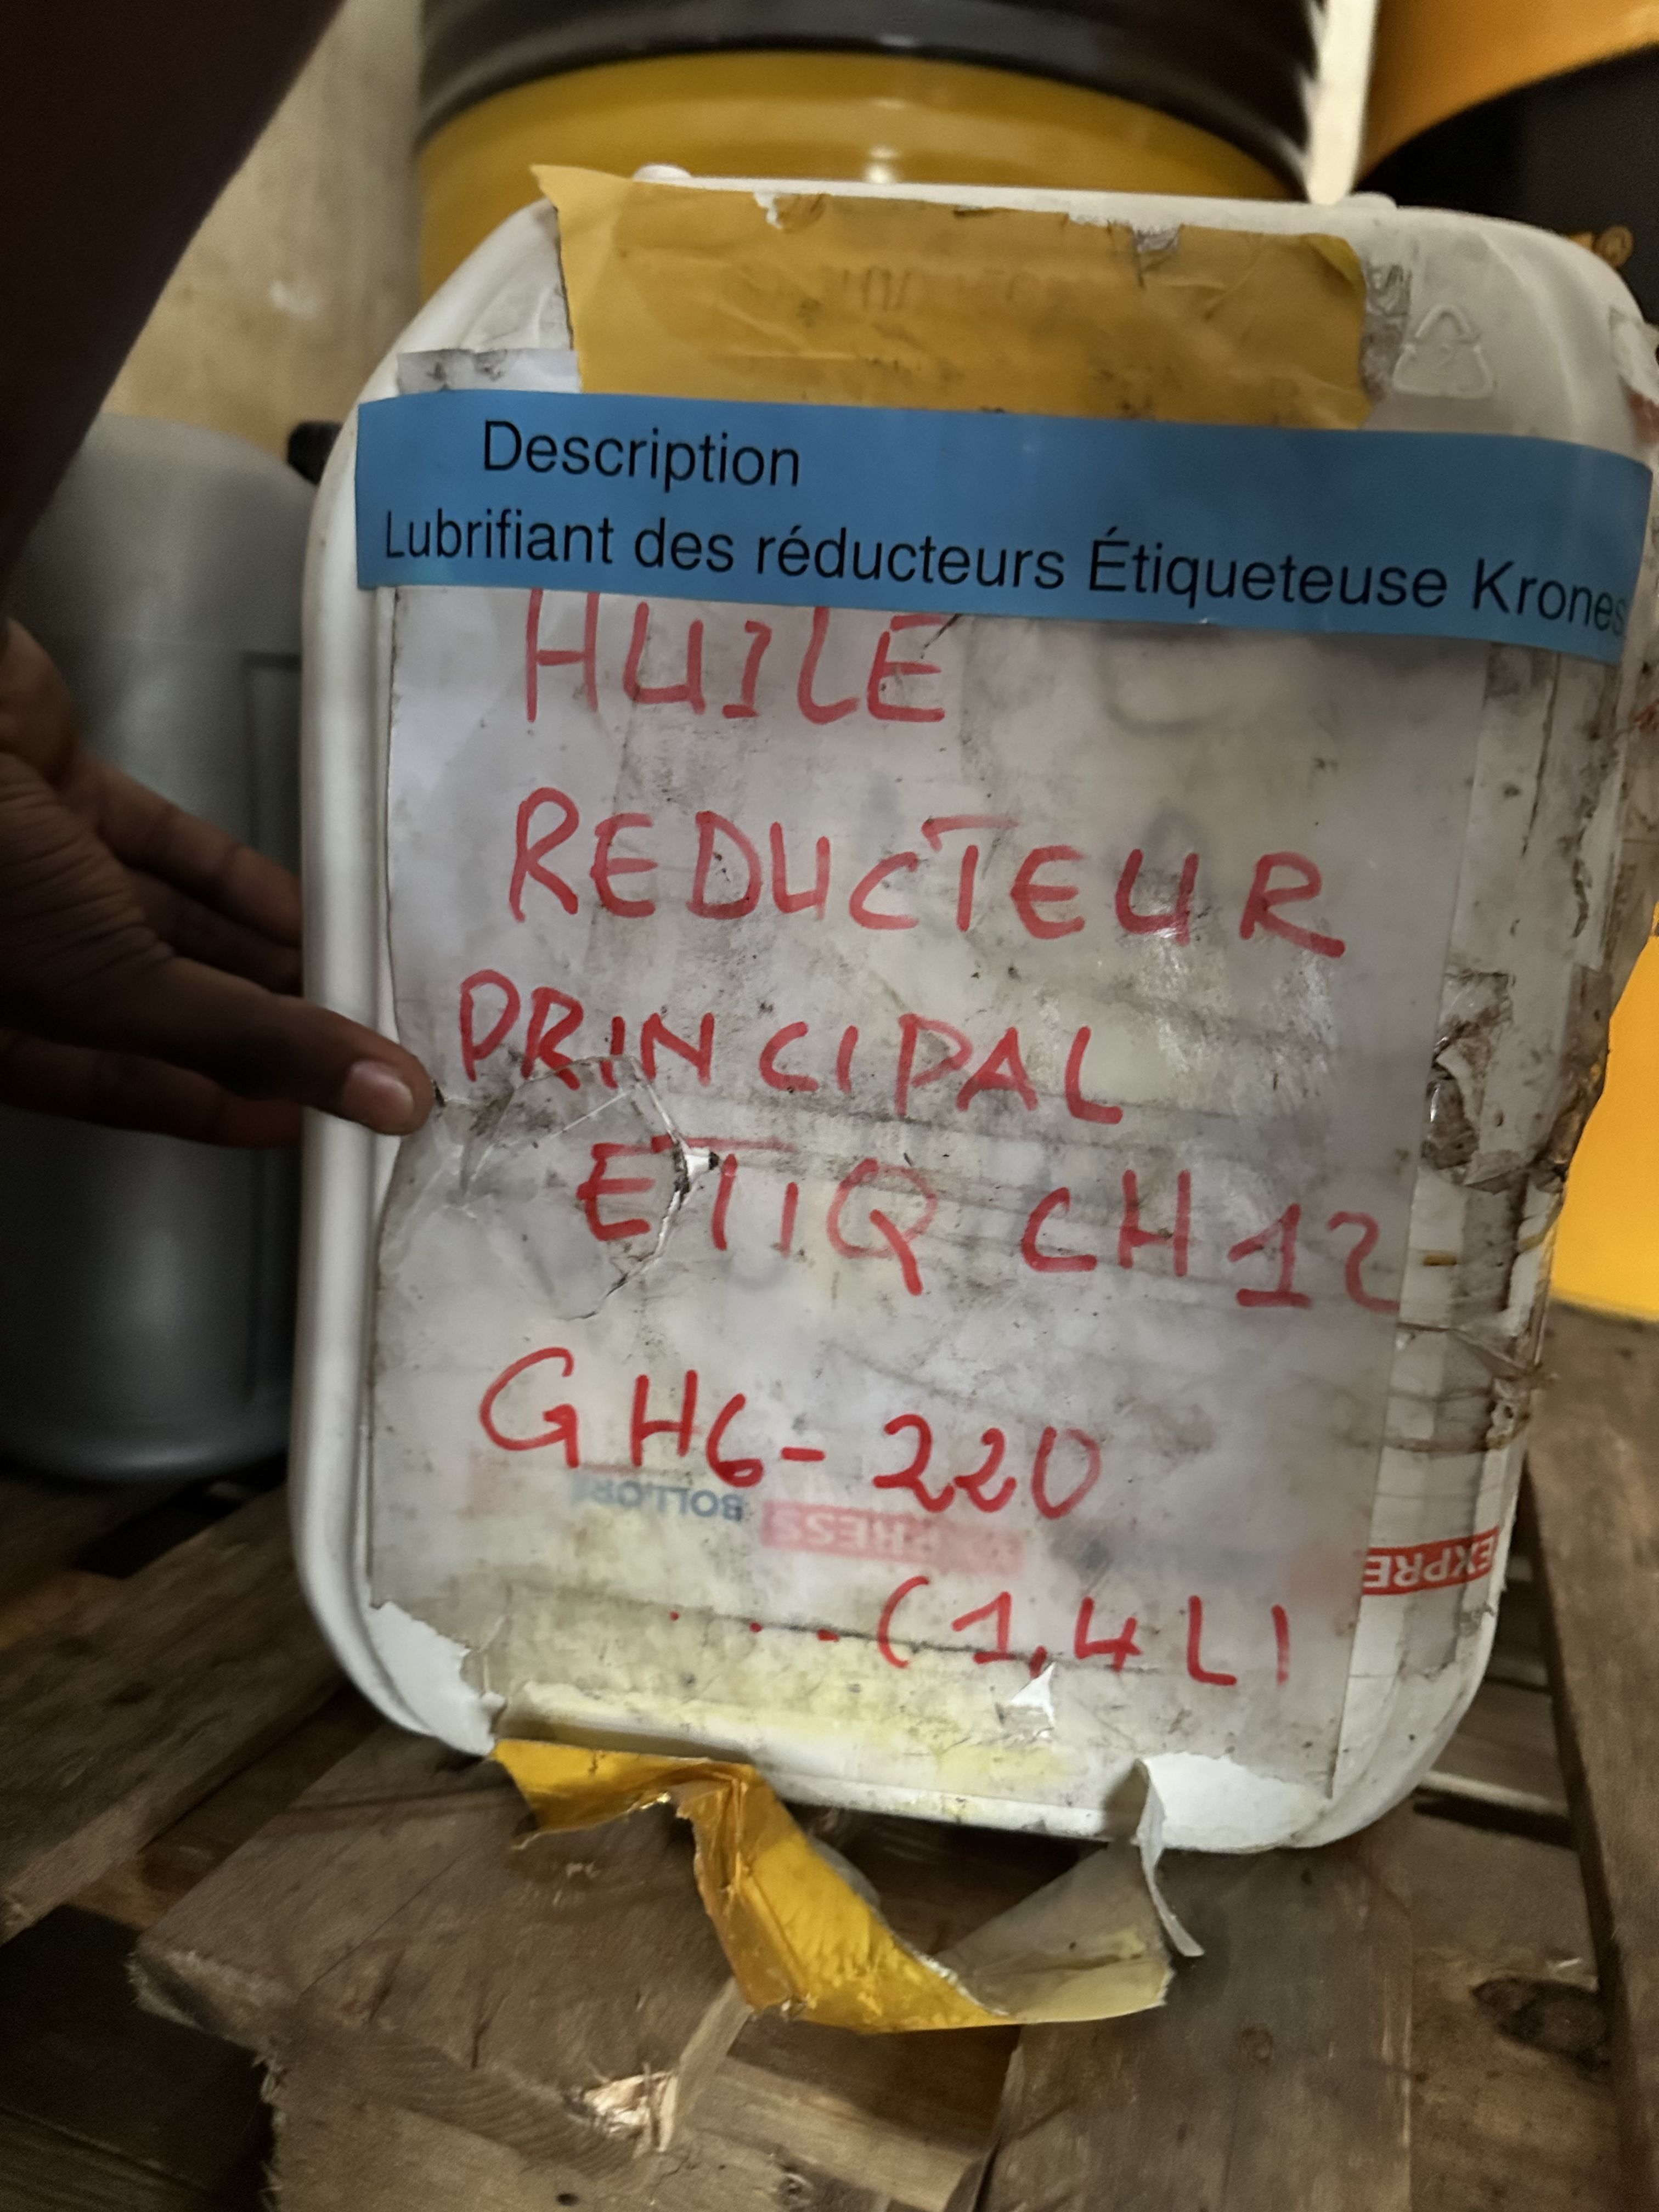 Description
Lubrifiant des réducteurs Étiqueteuse Krones
HUILE
REDUCTEUR
PRINCIPAL
ETIQ CH 12
GH6-220
BOLLORE
EXPRESS
EXPRE
... (1,4 L)